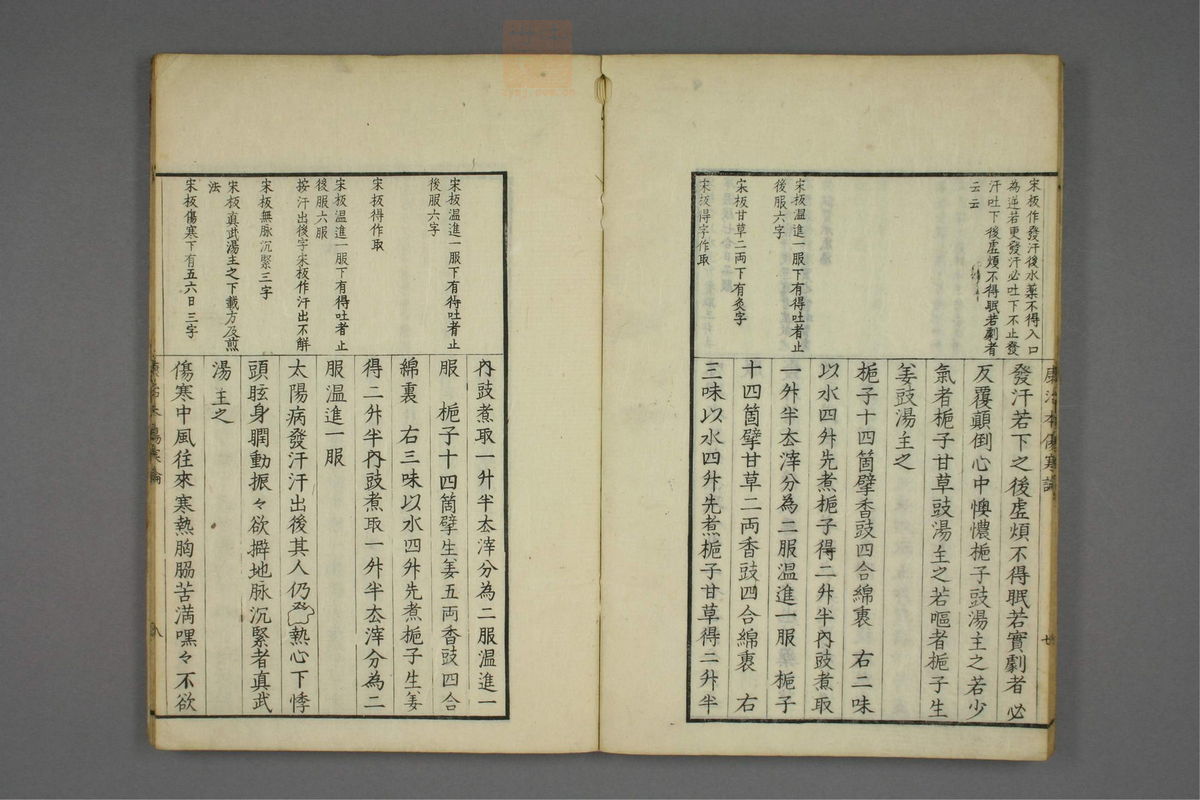 宋板作發汗後水薬不得入口
為逆若更發汗必吐下不止發
汗吐下後虚煩不得眠若劇者
云云
宋板温進一服下有得吐者止
後服六字
宋板甘草二両下有炙字
宋板得字作取
發汗若下之後虚煩不得眠若實劇者必
反覆顛倒心中懊憹梔子豉湯主之若少
氣者梔子甘草豉湯主之若嘔者梔子生
姜豉湯主之
梔子十四箇擘香豉四合綿裹　右二味
以水四升先煮梔子得二升半內豉煮取
一升半去滓分為二服温進一服　梔子
十四箇擘甘草二両香豉四合綿裹　右
三味以水四升先煮梔子甘草得二升半
宋板温進一服下有得吐者止
後服六字
宋板得作取
宋板温進一服下有得吐者止
後服六服
按汗出後字宋板作汗出不觧
宋板無脉沉緊三字
宋板真武湯主之下載方及煎
法
宋板傷寒下有五六日三字
內豉煮取一升半去滓分為二服温進一
服　梔子十四箇擘生姜五両香豉四合
綿裹　右三味以水四升先煮梔子生姜
得二升半內豉煮取一升半去滓分為二
服温進一服
太陽病發汗汗出後其人仍發熱心下悸
頭眩身瞤動振々欲擗地脉沉緊者真武
湯主之
傷寒中風往來寒熱胸脇苦満嘿々不欲